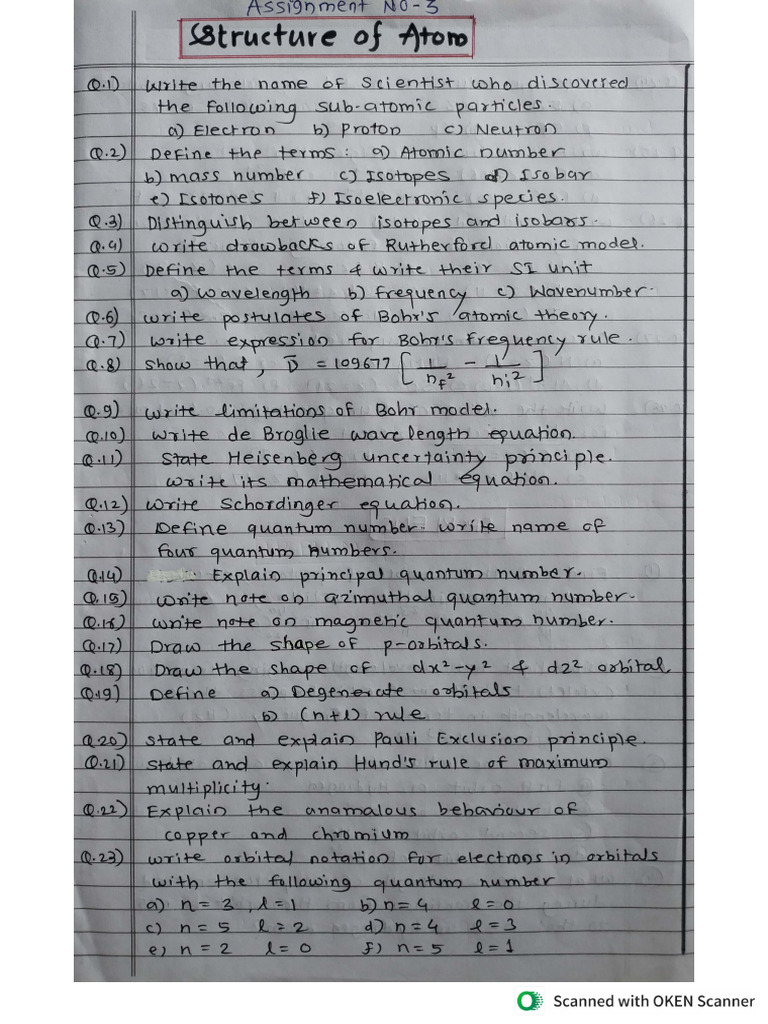 Assignment No-3
Structure of Atom
Q.1) Write the name of Scientist who discovered
the following sub-atomic particles.
a) Electron b) Proton c) Neutron
Q.2) Define the terms: a) Atomic number
b) mass number c) Isotopes d) Isobar
e) Isotones f) Isoelectronic species.
Q.3) Distinguish between isotopes and isobars.
Q.4) Write drawbacks of Rutherford atomic model.
Q.5) Define the terms & write their SI unit
a) wavelength b) frequency c) Wavenumber.
Q.6) Write postulates of Bohr's atomic theory.
Q.7) Write expression for Bohr's Frequency rule.
Q.8) Show that, ῡ = 109677 [ 1/nf² - 1/ni² ]
Q.9) Write limitations of Bohr model.
Q.10) Write de Broglie wave length equation.
Q.11) State Heisenberg uncertainty principle.
write its mathematical equation.
Q.12) Write Schordinger equation.
Q.13) Define quantum number. write name of
four quantum numbers.
Q.14) Explain principal quantum number.
Q.15) Write note on azimuthal quantum number.
Q.16) Write note on magnetic quantum number.
Q.17) Draw the shape of p-orbitals.
Q.18) Draw the shape of dx²-y² & dz² orbital
Q.19) Define a) Degenerate orbitals
b) (n+l) rule
Q.20) State and explain Pauli Exclusion principle.
Q.21) State and explain Hund's rule of maximum
multiplicity.
Q.22) Explain the anamalous behaviour of
copper and chromium
Q.23) Write orbital notation for electrons in orbitals
with the following quantum number
a) n = 3, l = 1 b) n = 4 l = 0
c) n = 5 l = 2 d) n = 4 l = 3
e) n = 2 l = 0 f) n = 5 l = 1
Scanned with OKEN Scanner